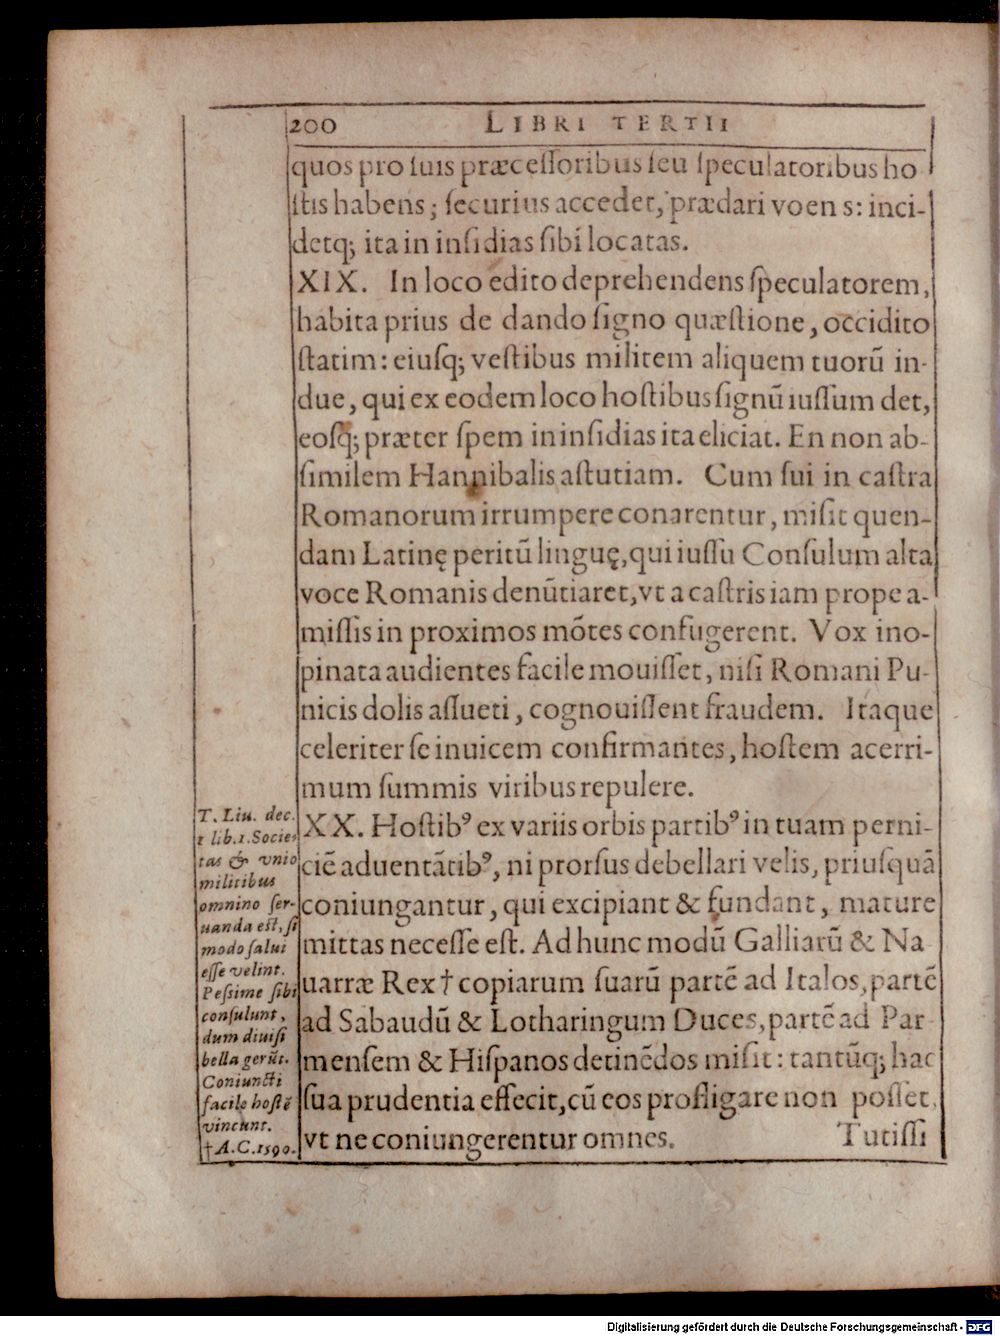 200 LIBRI TERTII
quos pro ſuis præceſſoribus ſeu ſpeculatoribus ho
ſtis habens; ſecurius accedet, prædari voens: inci-
detq; ita in inſidias ſibi locatas.
XIX. In loco edito deprehendens ſpeculatorem,
habita prius de dando ſigno quæſtione, occidito
ſtatim: eiuſq; veſtibus militem aliquem tuorũ in-
due, qui ex eodem loco hoſtibus ſignũ iuſſum det,
eoſq; præter ſpem in inſidias ita eliciat. En non ab-
ſimilem Hannibalis aſtutiam. Cum ſui in caſtra
Romanorum irrumpere conarentur, miſit quen-
dam Latinę peritũ linguę, qui iuſſu Conſulum alta
voce Romanis denũtiaret, vt a caſtris iam prope a-
miſſis in proximos mõtes confugerent. Vox ino-
pinata audientes facile mouiſſet, niſi Romani Pu-
nicis dolis aſſueti, cognouiſſent fraudem. Itaque
celeriter ſe inuicem confirmantes, hoſtem acerri-
mum ſummis viribus repulere.
XX. Hoſtibꝰ ex variis orbis partibꝰ in tuam perni-
ciẽ aduentãtibꝰ, ni prorſus debellari velis, priuſquã
coniungantur, qui excipiant & fundant, mature
mittas neceſſe eſt. Ad hunc modũ Galliarũ & Na
uarræ Rex † copiarum ſuarũ partẽ ad Italos, partẽ
ad Sabaudũ & Lotharingum Duces, partẽ ad Par
menſem & Hiſpanos detinẽdos miſit: tantũq; hac
ſua prudentia effecit, cũ eos profligare non poſſet,
vt ne coniungerentur omnes.
Tutiſſi
T. Liu. dec.
1 lib. 1. Socie-
tas & vnio
militibus
omnino ſer-
uanda eſt, ſi
modo ſalui
eſſe velint.
Peſsime ſibi
conſulunt,
dum diuiſi
bella gerũt.
Coniuncti
facile hoſtẽ
vincunt.
† A.C. 1590.
Digitalisierung gefördert durch die Deutsche Forschungsgemeinschaft - DFG